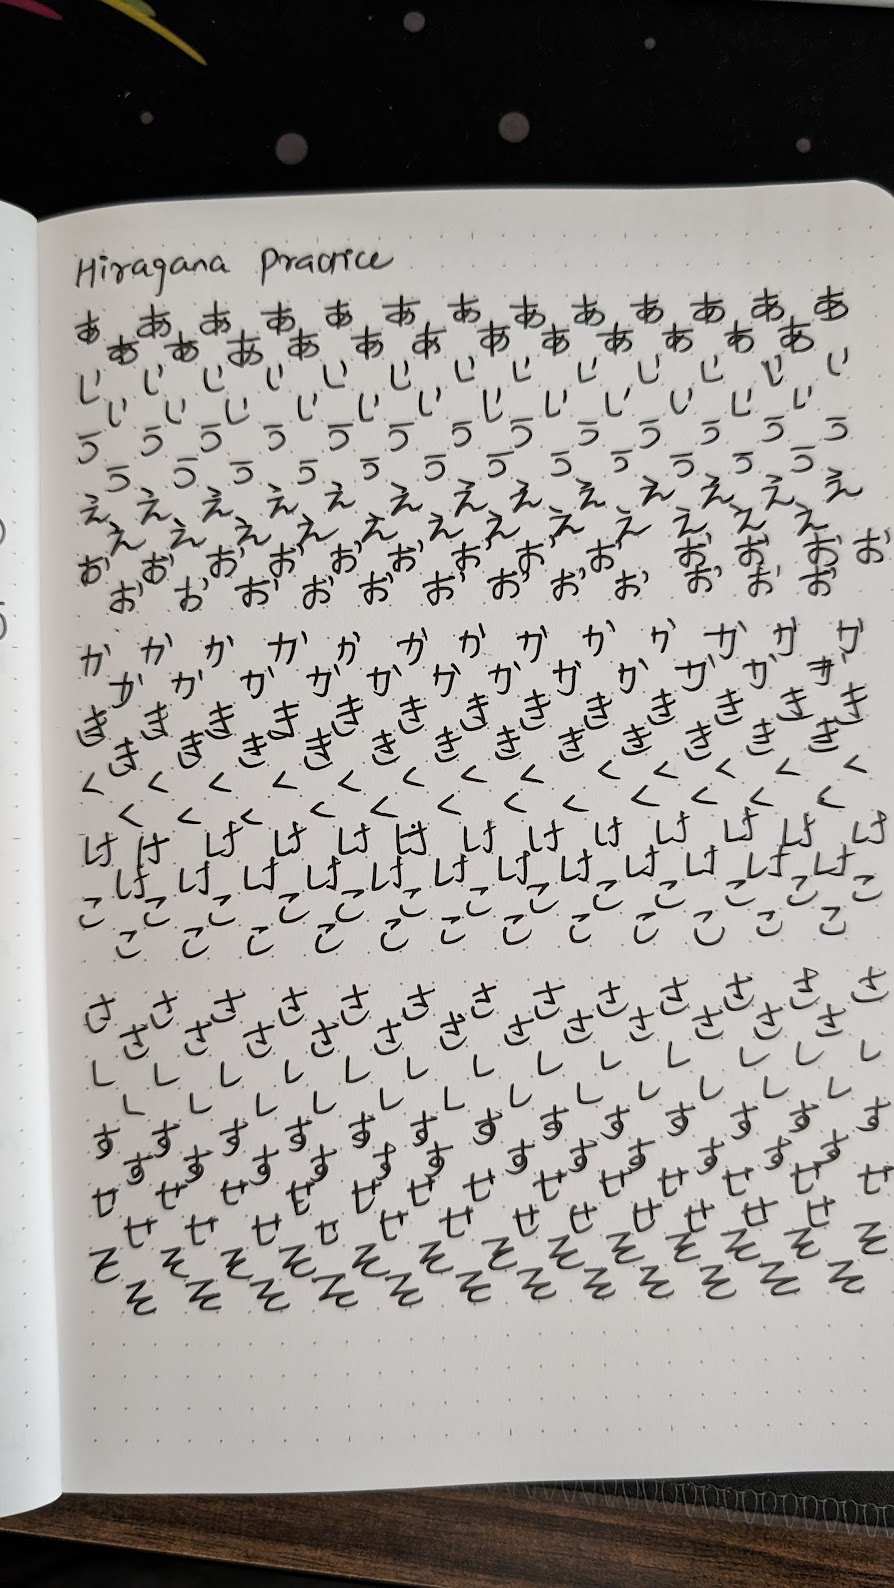 Hiragana Practice
あ あ あ あ あ あ あ あ あ あ あ あ あ
あ あ あ あ あ あ あ あ あ あ あ あ
い い い い い い い い い い い い い
い い い い い い い い い い い い
う う う う う う う う う う う う う
う う う う う う う う う う う う
え え え え え え え え え え え え え
え え え え え え え え え え え え
お お お お お お お お お お お お お
お お お お お お お お お お お お
か か か か か か か か か か か か か
か か か か か か か か か か か か
き き き き き き き き き き き き き
き き き き き き き き き き き き
く く く く く く く く く く く く く
く く く く く く く く く く く く
け け け け け け け け け け け け け
け け け け け け け け け け け け
こ こ こ こ こ こ こ こ こ こ こ こ こ
こ こ こ こ こ こ こ こ こ こ こ こ
さ さ さ さ さ さ さ さ さ さ さ さ さ
さ さ さ さ さ さ さ さ さ さ さ さ
し し し し し し し し し し し し し
し し し し し し し し し し し し
す す す す す す す す す す す す す
す す す す す す す す す す す す
せ せ せ せ せ せ せ せ せ せ せ せ せ
せ せ せ せ せ せ せ せ せ せ せ せ
そ そ そ そ そ そ そ そ そ そ そ そ そ
そ そ そ そ そ そ そ そ そ そ そ そ